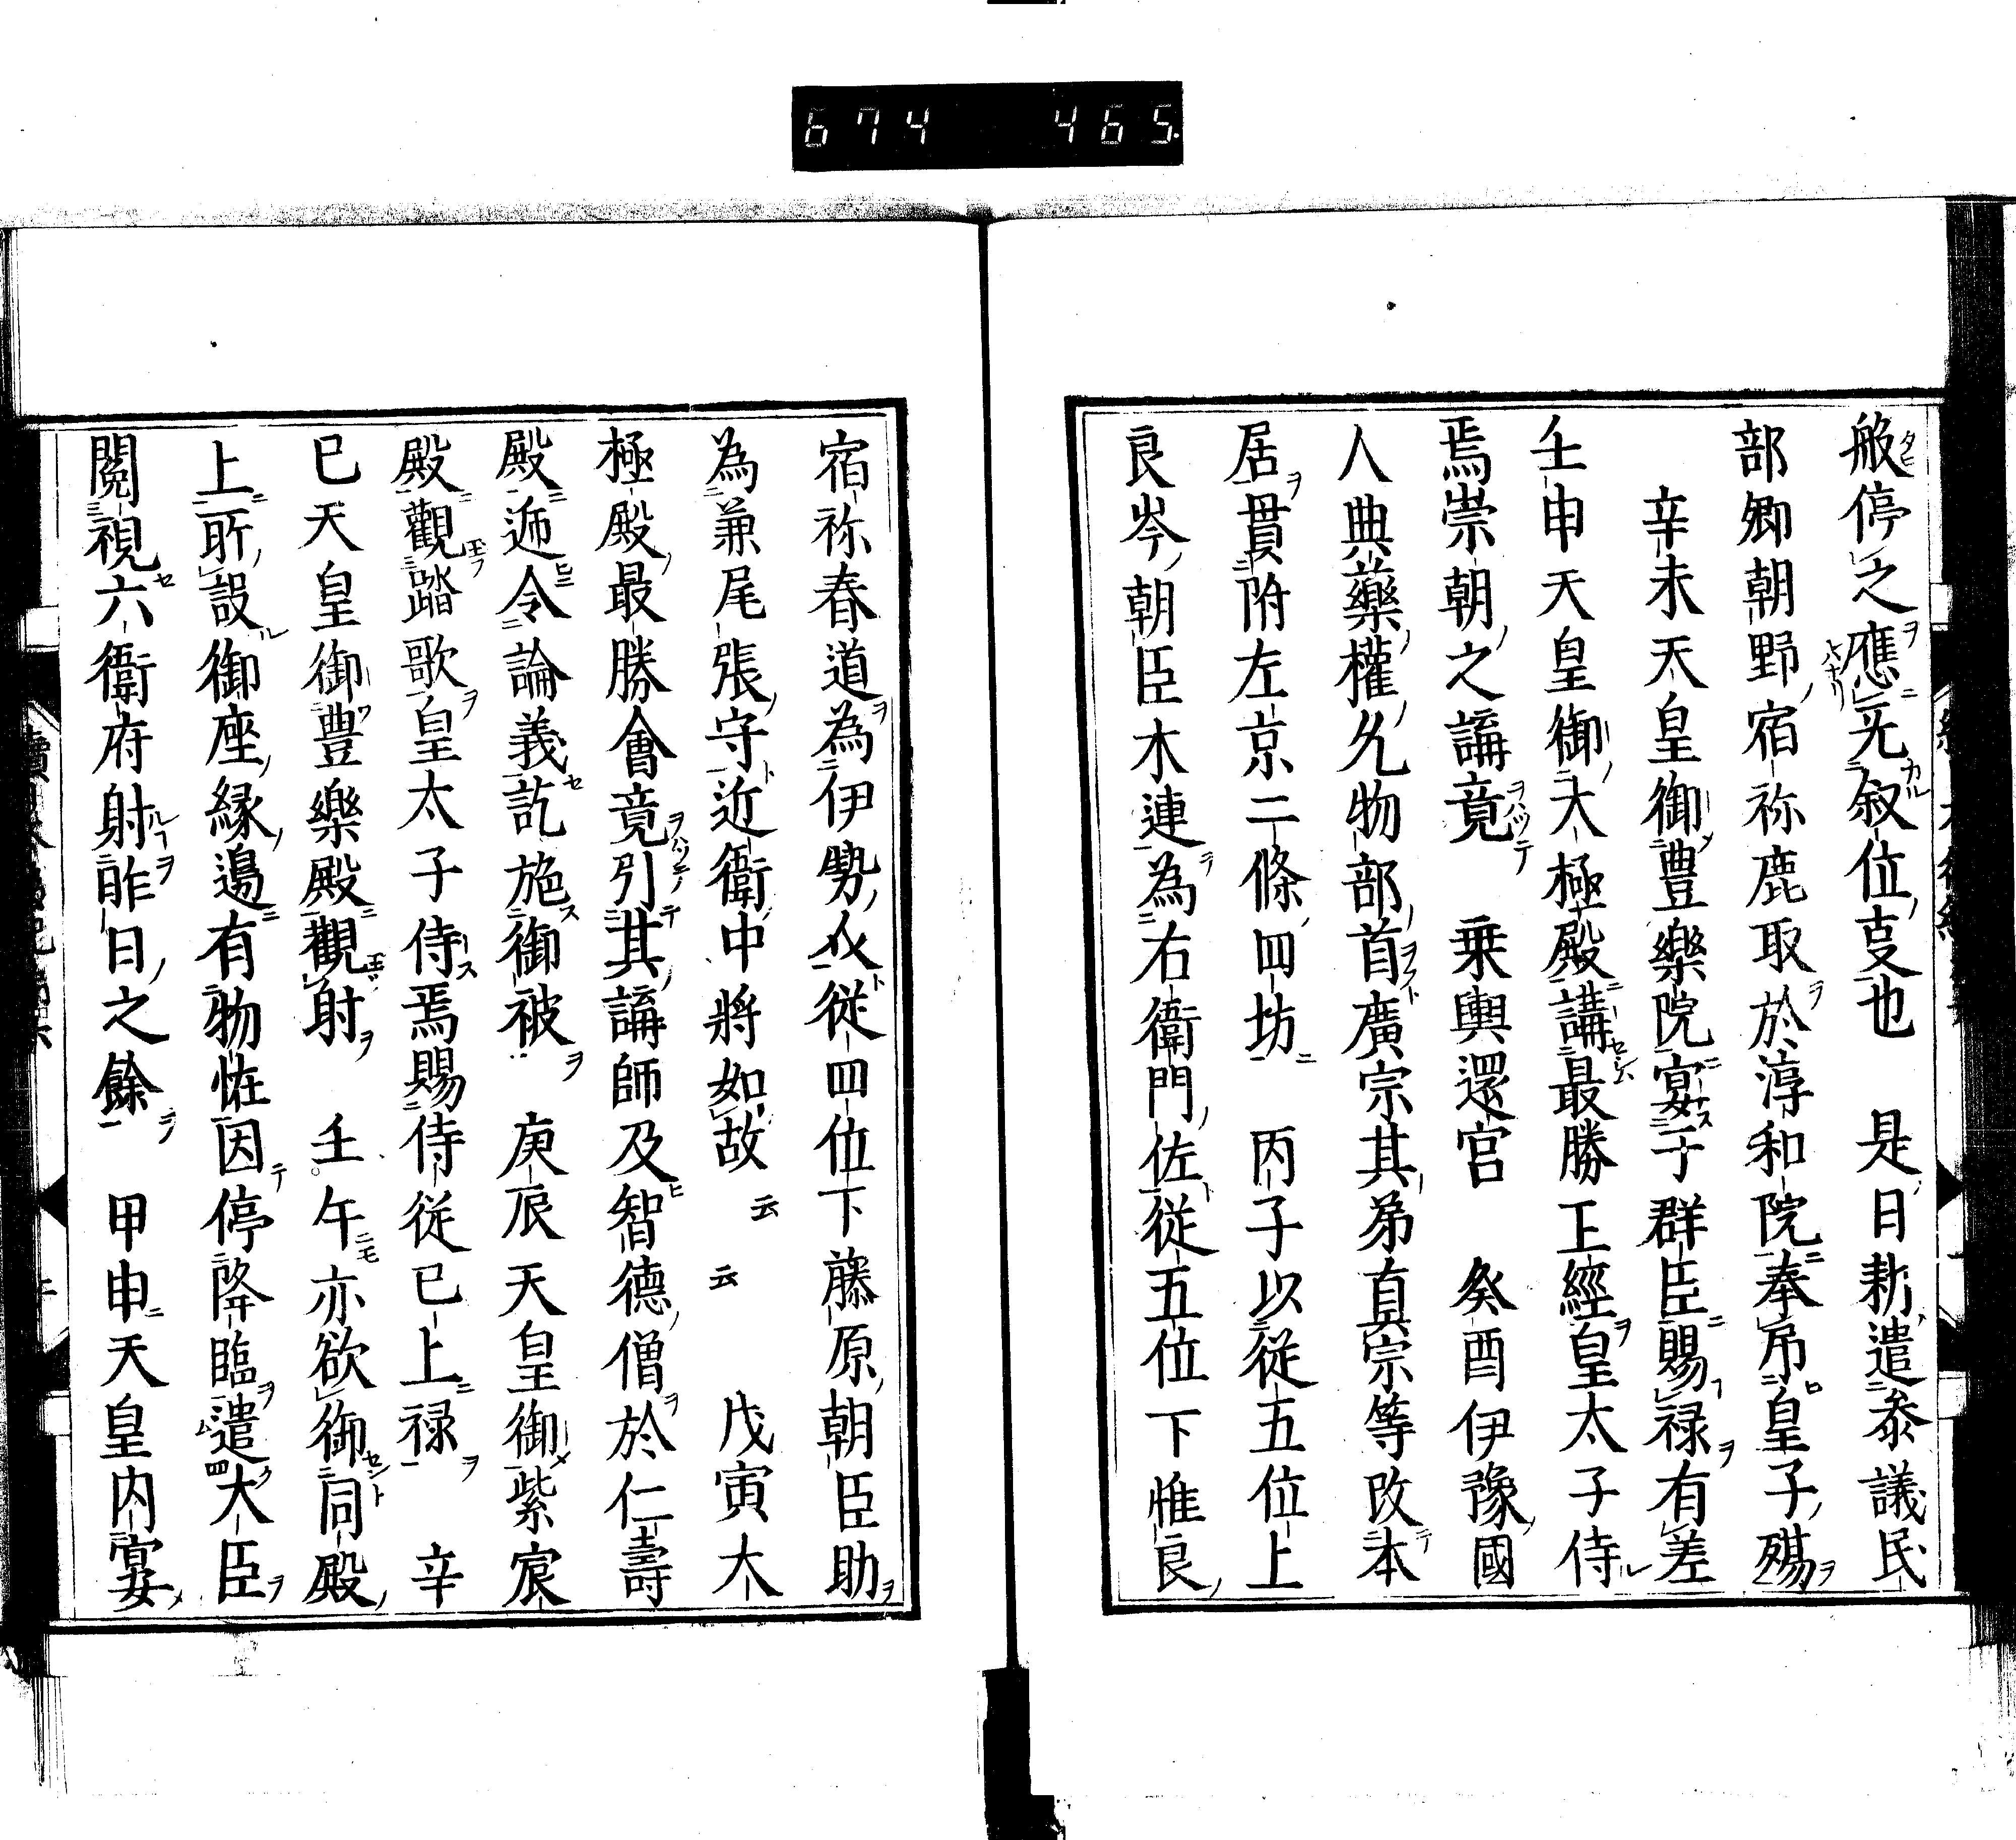 674 465
般停之應充叙位㕝也 是日勅遣叅議民
部卿朝野宿祢鹿取於淳和院奉弔皇子殤
辛未天皇御豊樂院宴于群臣賜禄有差
壬申天皇御大極殿講最勝王經皇太子侍
焉崇朝之講竟 乗輿還宮 癸酉伊豫國
人典藥權允物部首廣宗其弟真宗等改本
居貫附左京二條四坊 丙子以從五位上
良岑朝臣木連為右衛門佐從五位下惟良
宿祢春道為伊勢介從四位下藤原朝臣助
為兼尾張守近衛中將如故 云云 戊寅大
極殿最勝會竟引其講師及智德僧於仁壽
殿逓令論義訖施御被 庚辰天皇御紫宸
殿觀踏歌皇太子侍焉賜侍從已上禄 辛
巳天皇御豊樂殿觀射 壬午亦欲御同殿
上所設御座縁邊有物恠因停降臨遣大臣
閲視六衛府射昨日之餘 甲申天皇内宴